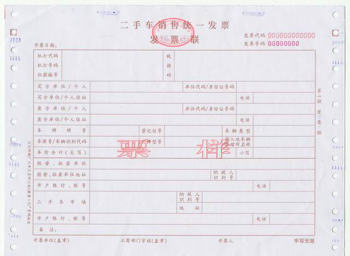 二手车销售统一发票
发票联
发票代码 000000000000
发票号码 00000000
开票日期:
机打代码
机打号码
机器编号
税控码
买方单位/个人
单位代码/身份证号码
买方单位/个人住址
电话
卖方单位/个人
单位代码/身份证号码
卖方单位/个人住址
电话
车牌照号
登记证号
车辆类型
车架号/车辆识别代码
厂牌型号
票样
车价合计(大写)
小写
经营、拍卖单位
经营、拍卖单位地址
纳税人识别号
开户银行、账号
电话
二手车市场
纳税人识别号
地址
开户银行、账号
电话
备注
开票单位(盖章)
工商部门审核(盖章)
开票人
手写无效